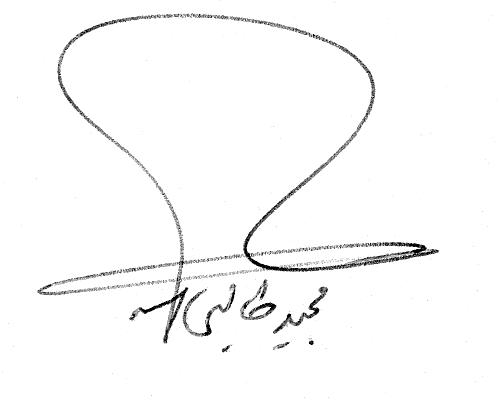 مجید طالبی